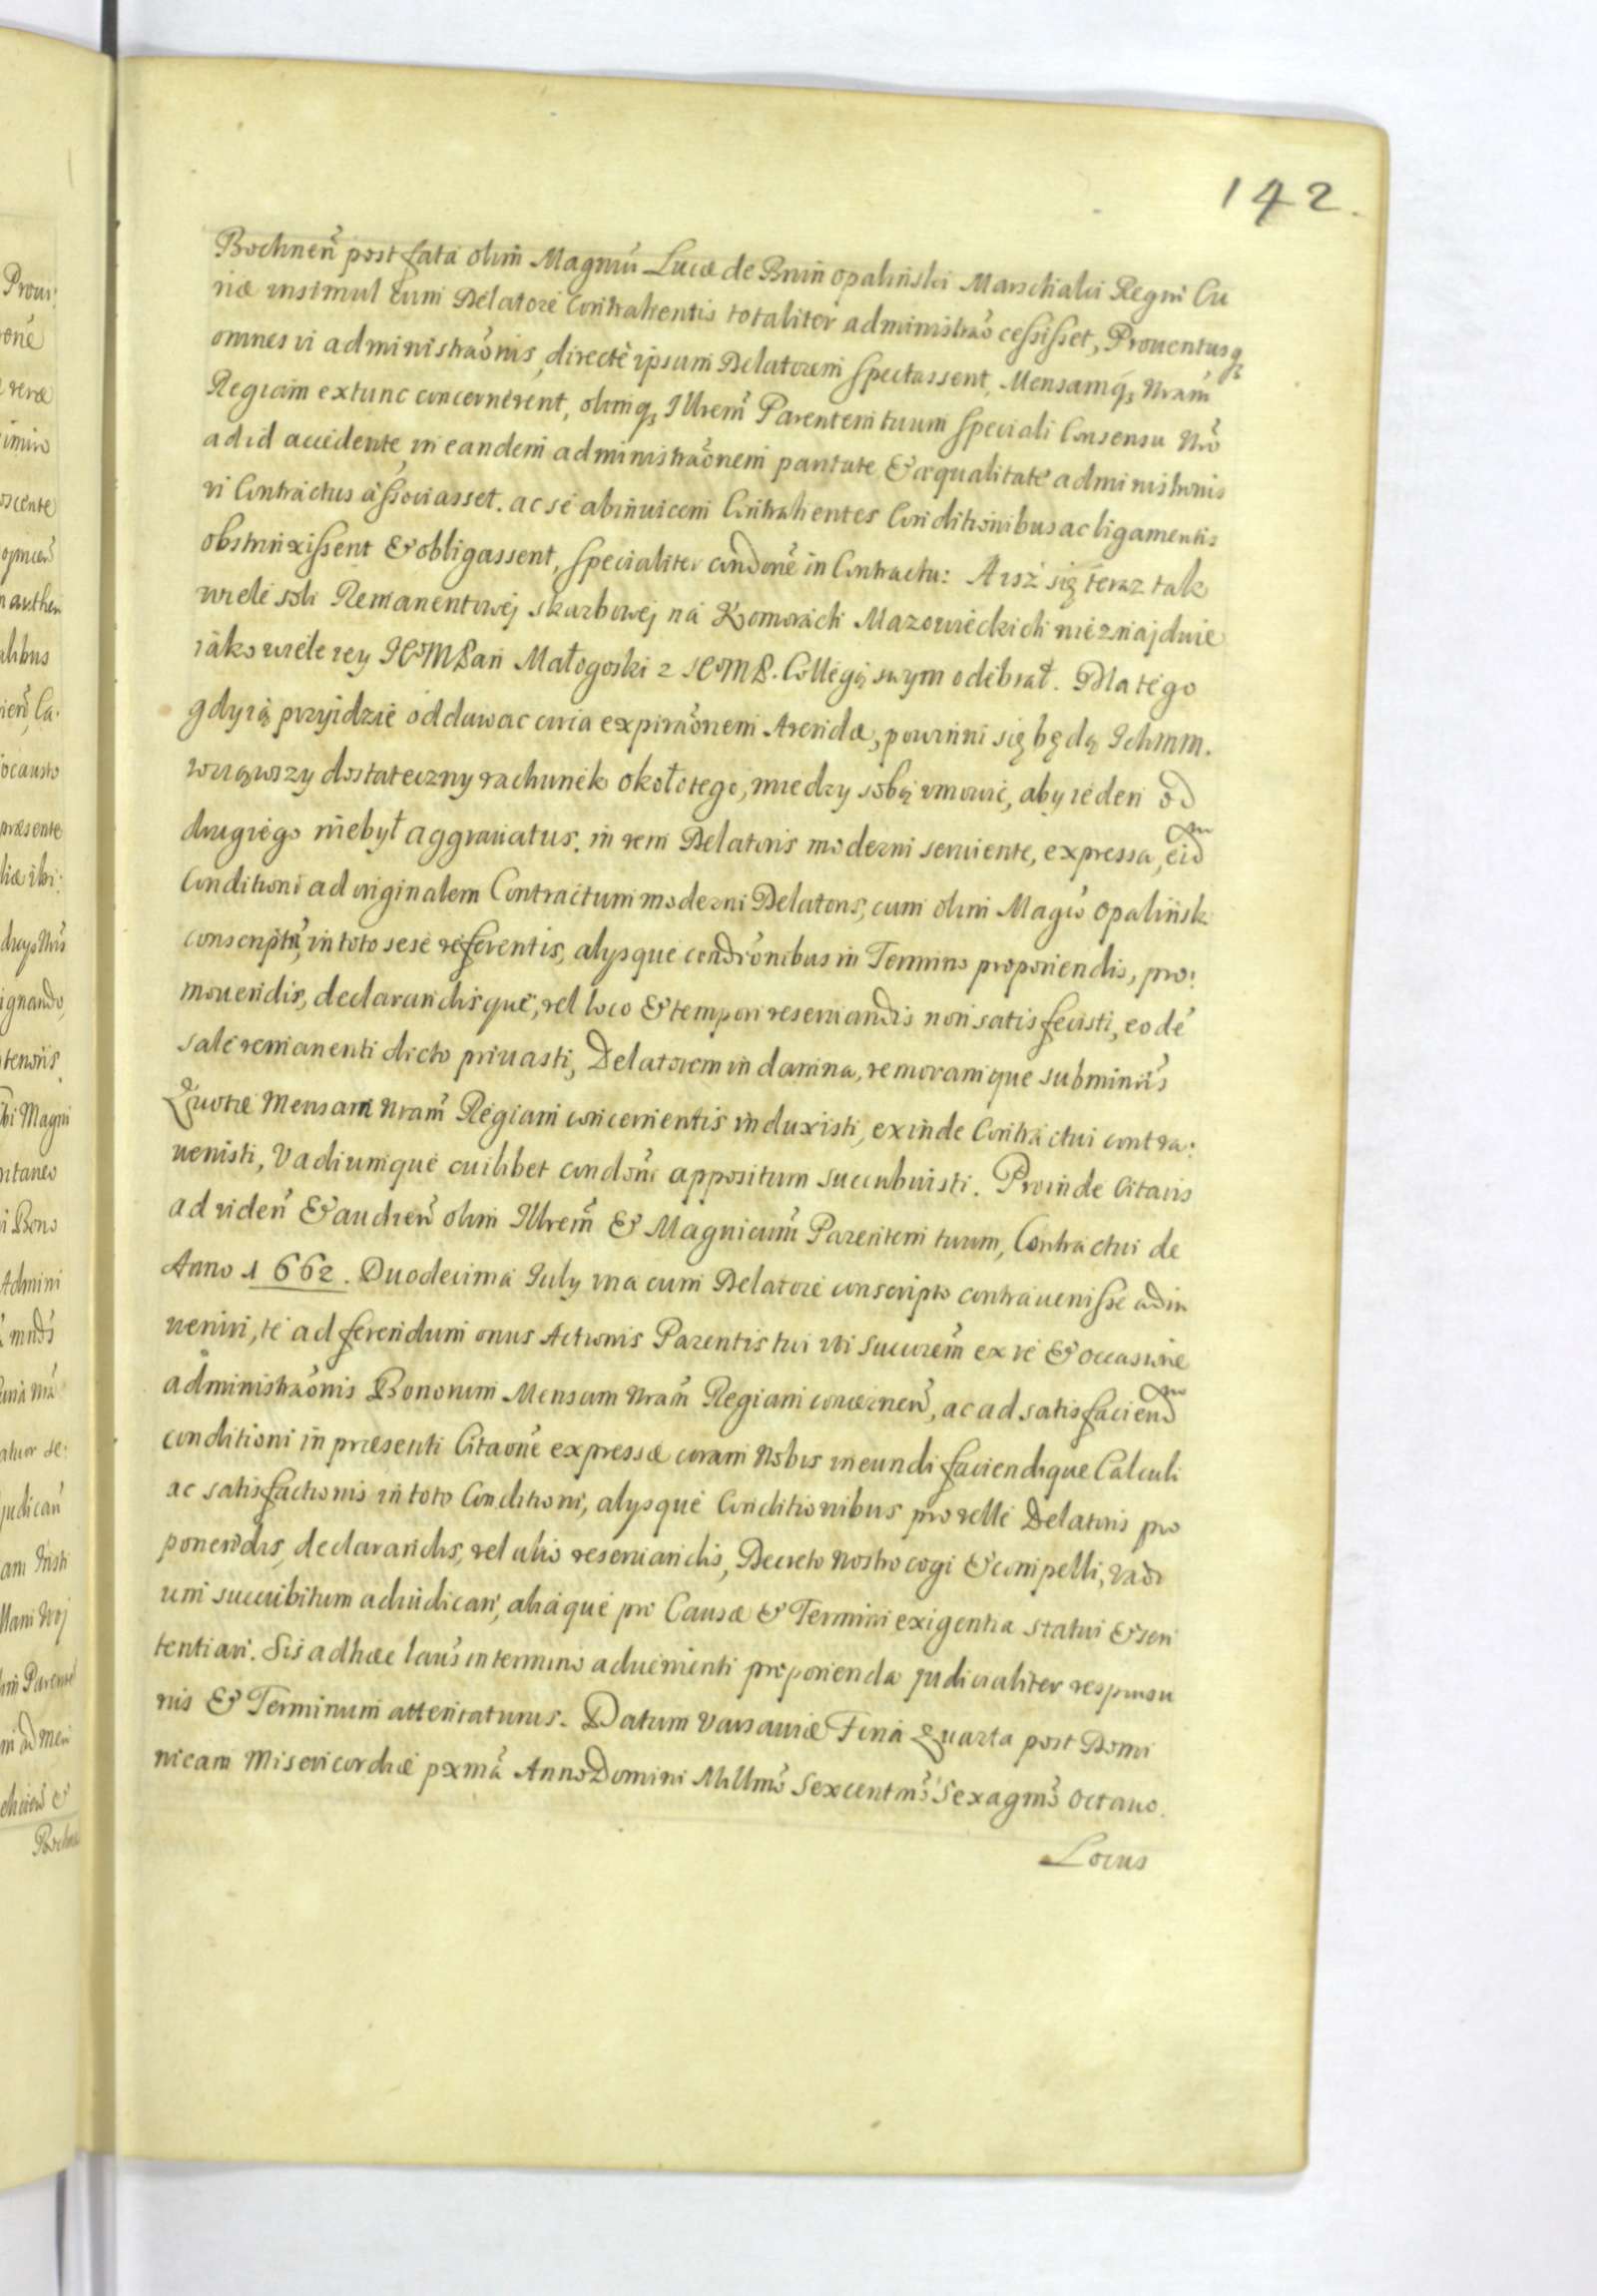 142.
Bochnen̄ post fata olim̄ Magnīū Lucæ de Bnin opalinski Marschalci Regni Cu
riæ insimul cum Delatore Contrahentis totaliter administrāo cessisset, Prouentusq
omnes vi administrāonis, directè ipsum Delatorem spectassent, Mensamq, Nram̄
Regiam extunc concernerent, olimq, Illrem̄ Parentem tuum speciali Consensu Nrō
ad id accedente in eandem administrāonem paritate & æqualitate administronis
vi Contractus associasset. ac se abinuicem Contrahentes Conditionibus ac ligamentis
obstrinxissent & obligassent, specialiter condōne in Contractu: A isz się teraz tak
wiele soli Remanentowej skarbowej na Komorach Mazowieckich nieznajduie
iako wiele iey JEoMPan Małogoski z JEoMP. Collegą swym odebrał. Dla tego
gdy ią przyidzie oddawac circa expirāonem Arendæ, powinni się będą Ichmm.
wziąwszy dostateczny rachunek około tego, miedzy sobą umowic, aby ieden od
drugiego niebył aggrauatus. in rem Delatoris moderni seruiente, expressa, eid
Conditioni ad originalem Contractum moderni Delatoris, cum olim Magcō Opalinsk
conscriptū, in toto sese referentis, alysque condrōnibus in Termino proponendis, pro:
mouendis, declarandisque, vel loco & tempori reseruandis non satisfecisti, eo de
sale remanenti dicto priuasti, Delatorem in damna, remoramque subminis
Quotæ Mensam Nram̄ Regiam concernentis induxisti, exinde Contractui contra:
uenisti, Vadiumque cuilibet condōni appositum succubuisti. Proinde Citaris
ad viden̄ & audien̄ olim Illrem̄ & Magnicum̄ Parentem tuum, Contractui de
Anno 1662. Duodecima July vna cum Delatore conscripto contrauenisse adin
ueniri, te ad ferendum onus Actionis Parentis tui vti succrem̄ ex re & occasione
administrāonis Bonorum Mensam Nram̄ Regiam concernen̄, ac ad satisfaciend
conditioni in præsenti Citāone expressæ coram Nobis ineundi faciendique Calculi
ac satisfactionis in toto Conditioni, alysque Conditionibus pro velle Delatoris pro
ponendis, declarandis, vel alio reseruandis, Decreto Nostro cogi & compelli, vadi
um succubitum adiudicari, aliaque pro Causæ & Termini exigentia statui & sen
tentiari. Sis ad hæc latius in termino aduenienti proponenda judicialiter responsu
rus & Terminum attentaturus. Datum Varsauiæ Feria Quarta post Domi
nicam Misericordiæ pxmā Anno Domini Millmō Sexcentmō Sexagmō Octauo.
Locus